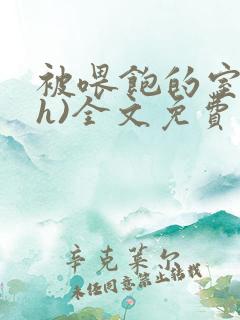 被喂饱的室
h)全文免费
辛克莱尔
未经同意禁止转载